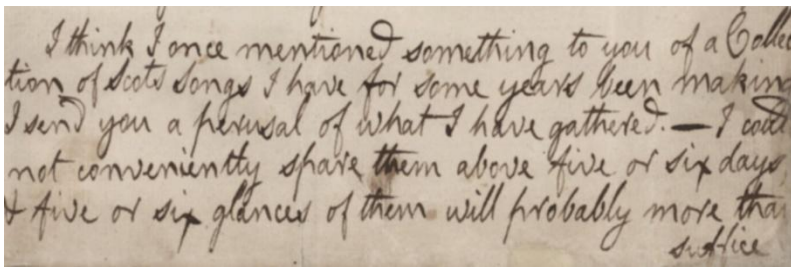 I think I once mentioned something to you of a Collec
tion of Scots Songs I have for some years been making
I send you a perusal of what I have gathered. — I could
not conveniently spare them above five or six days
& five or six glances of them will probably more than
suffice